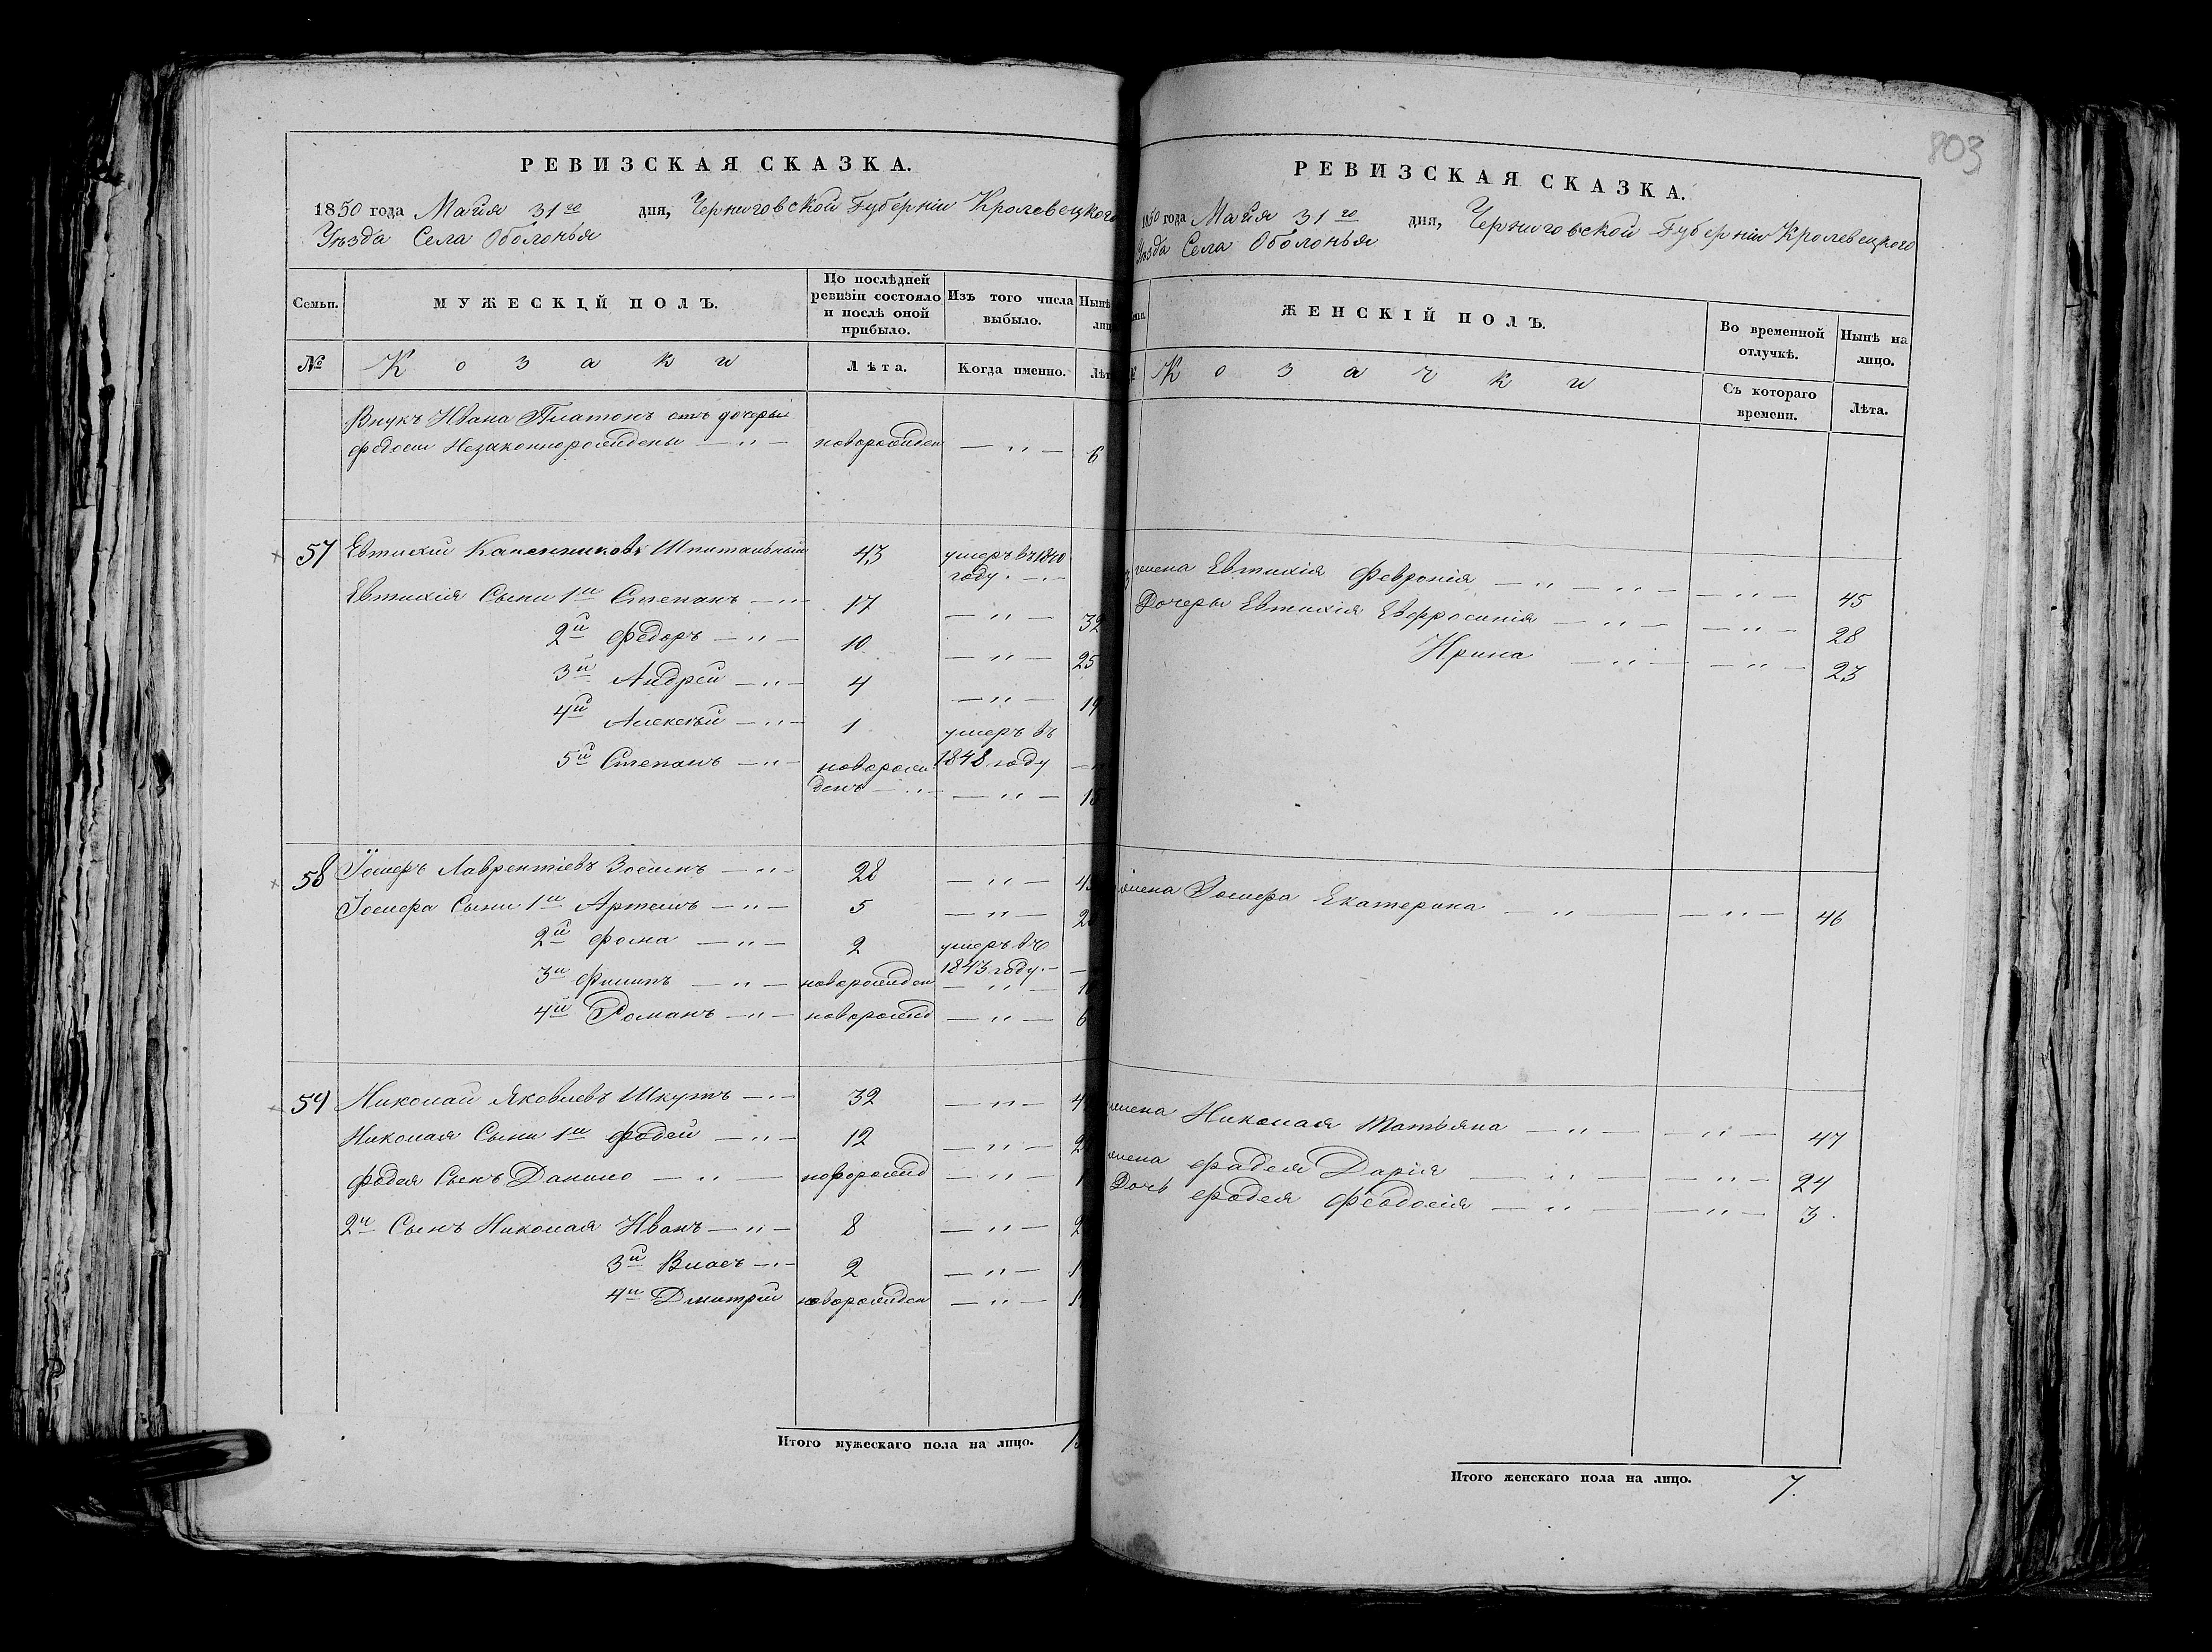 РЕВИЗСКАЯ СКАЗКА.
1850 года Маія 31го дня, Черниговской Губерніи Кролевецкого
Уѣзда Села Оболонья
Семьи. МУЖЕСКІЙ ПОЛЪ. По послѣдней ревизіи состояло и послѣ оной прибыло. Изъ того числа выбыло. Нынѣ
№ Козаки Лѣта. Когда именно. Лѣт
Внукъ Ивана Платонъ отъ дочеры
Федосіи Незаконнорожденны — " — новорожден — " — 6
57 Евтихій Шпитальный 43 умеръ въ 1840
году. — " —
Евтихія Сыны 1й Степанъ — " — 17 — " — 32
2й Федоръ — " — 10 — " — 25
3й Андрей — " — 4 — " — 19
4й Алексѣй — " — 1 умеръ въ
1848 году —
5й Степанъ — " — новорож
денъ — " — — " — 15
58 Іосифъ Лаврентіевъ Зосимъ — " — 28 — " —
Іосифа Сыны 1й Артемъ — " — 5 — " —
2й Фома — " — 2 умеръ въ
1843 году. —
3й Филипъ — " — новорожден — " —
4й Романъ — " — новорожд — " — 6
59 Николай Яковлевъ Шкутъ — " — 32 — " —
Николая Сыны 1й Фадей — " — 12 — " —
Фадея Сынъ Данило — " — новорожд — " —
2й Сынъ Николая Иванъ — " — 8 — " —
3й Власъ — " — 2 — " —
4й Дмитрій новорожден — " —
Итого мужескаго пола на лицо.
803
РЕВИЗСКАЯ СКАЗКА.
1850 года Маія 31го дня, Черниговской Губерніи Кролевецкого
Уѣзда Села Оболонья
ЖЕНСКІЙ ПОЛЪ. Во временной отлучкѣ. Нынѣ на лицо.
№ Козачки Съ котораго времени. Лѣта.
Жена Евтихія Февронія — " — " — — " — 45
Дочеры Евтихія Евфросинія — " — — " — 28
Ирина — " — — " — 23
жена Іосифа Екатерина — " — — " — 46
жена Николая Татьяна — " — — " — 47
жена Фадея Дарія — " — — " — 24
Дочь Фадея Феодосія — " — — " — 3.
Итого женскаго пола на лицо. 7.